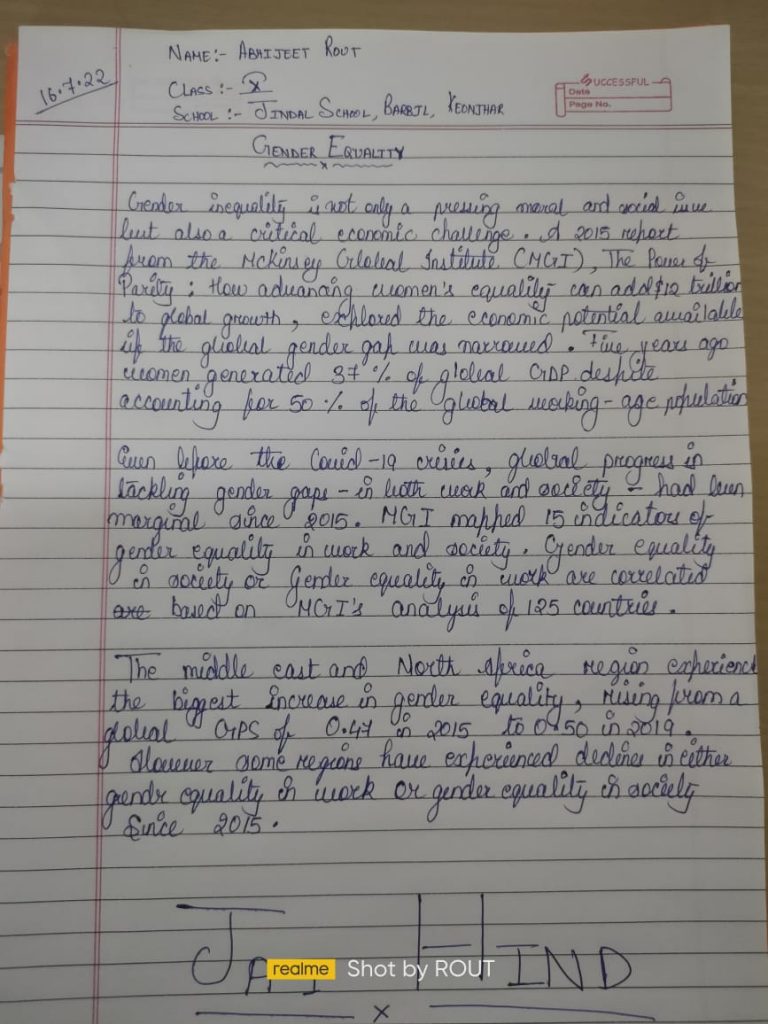 NAME:- ABHIJEET ROUT
16.7.22
CLASS:- X
SCHOOL:- JINDAL SCHOOL, BARBIL, KEONJHAR
SUCCESSFUL
Date
Page No.
GENDER EQUALITY
x
Gender inequality is not only a pressing moral and social issue
but also a critical economic challenge. A 2015 report
from the McKinsey Global Institute (MGI), The Power of
Parity: How advancing women's equality can add $12 trillion
to global growth, explored the economic potential available
if the global gender gap was narrowed. Five years ago
women generated 37% of global GDP despite
accounting for 50% of the global working-age population
Even before the Covid-19 crisies, global progress in
tackling gender gaps - in both work and society - had been
marginal since 2015. MGI mapped 15 indicators of
gender equality in work and society. Gender equality
in society or Gender equality in work are correlated
are based on MGI's analysis of 125 countries.
The middle east and North Africa region experienced
the biggest increase in gender equality, rising from a
global GPS of 0.47 in 2015 to 0.50 in 2019.
However some regions have experienced declines in either
gendr equality in work or gender equality in society
Since 2015.
JAI HIND
realme Shot by ROUT
x